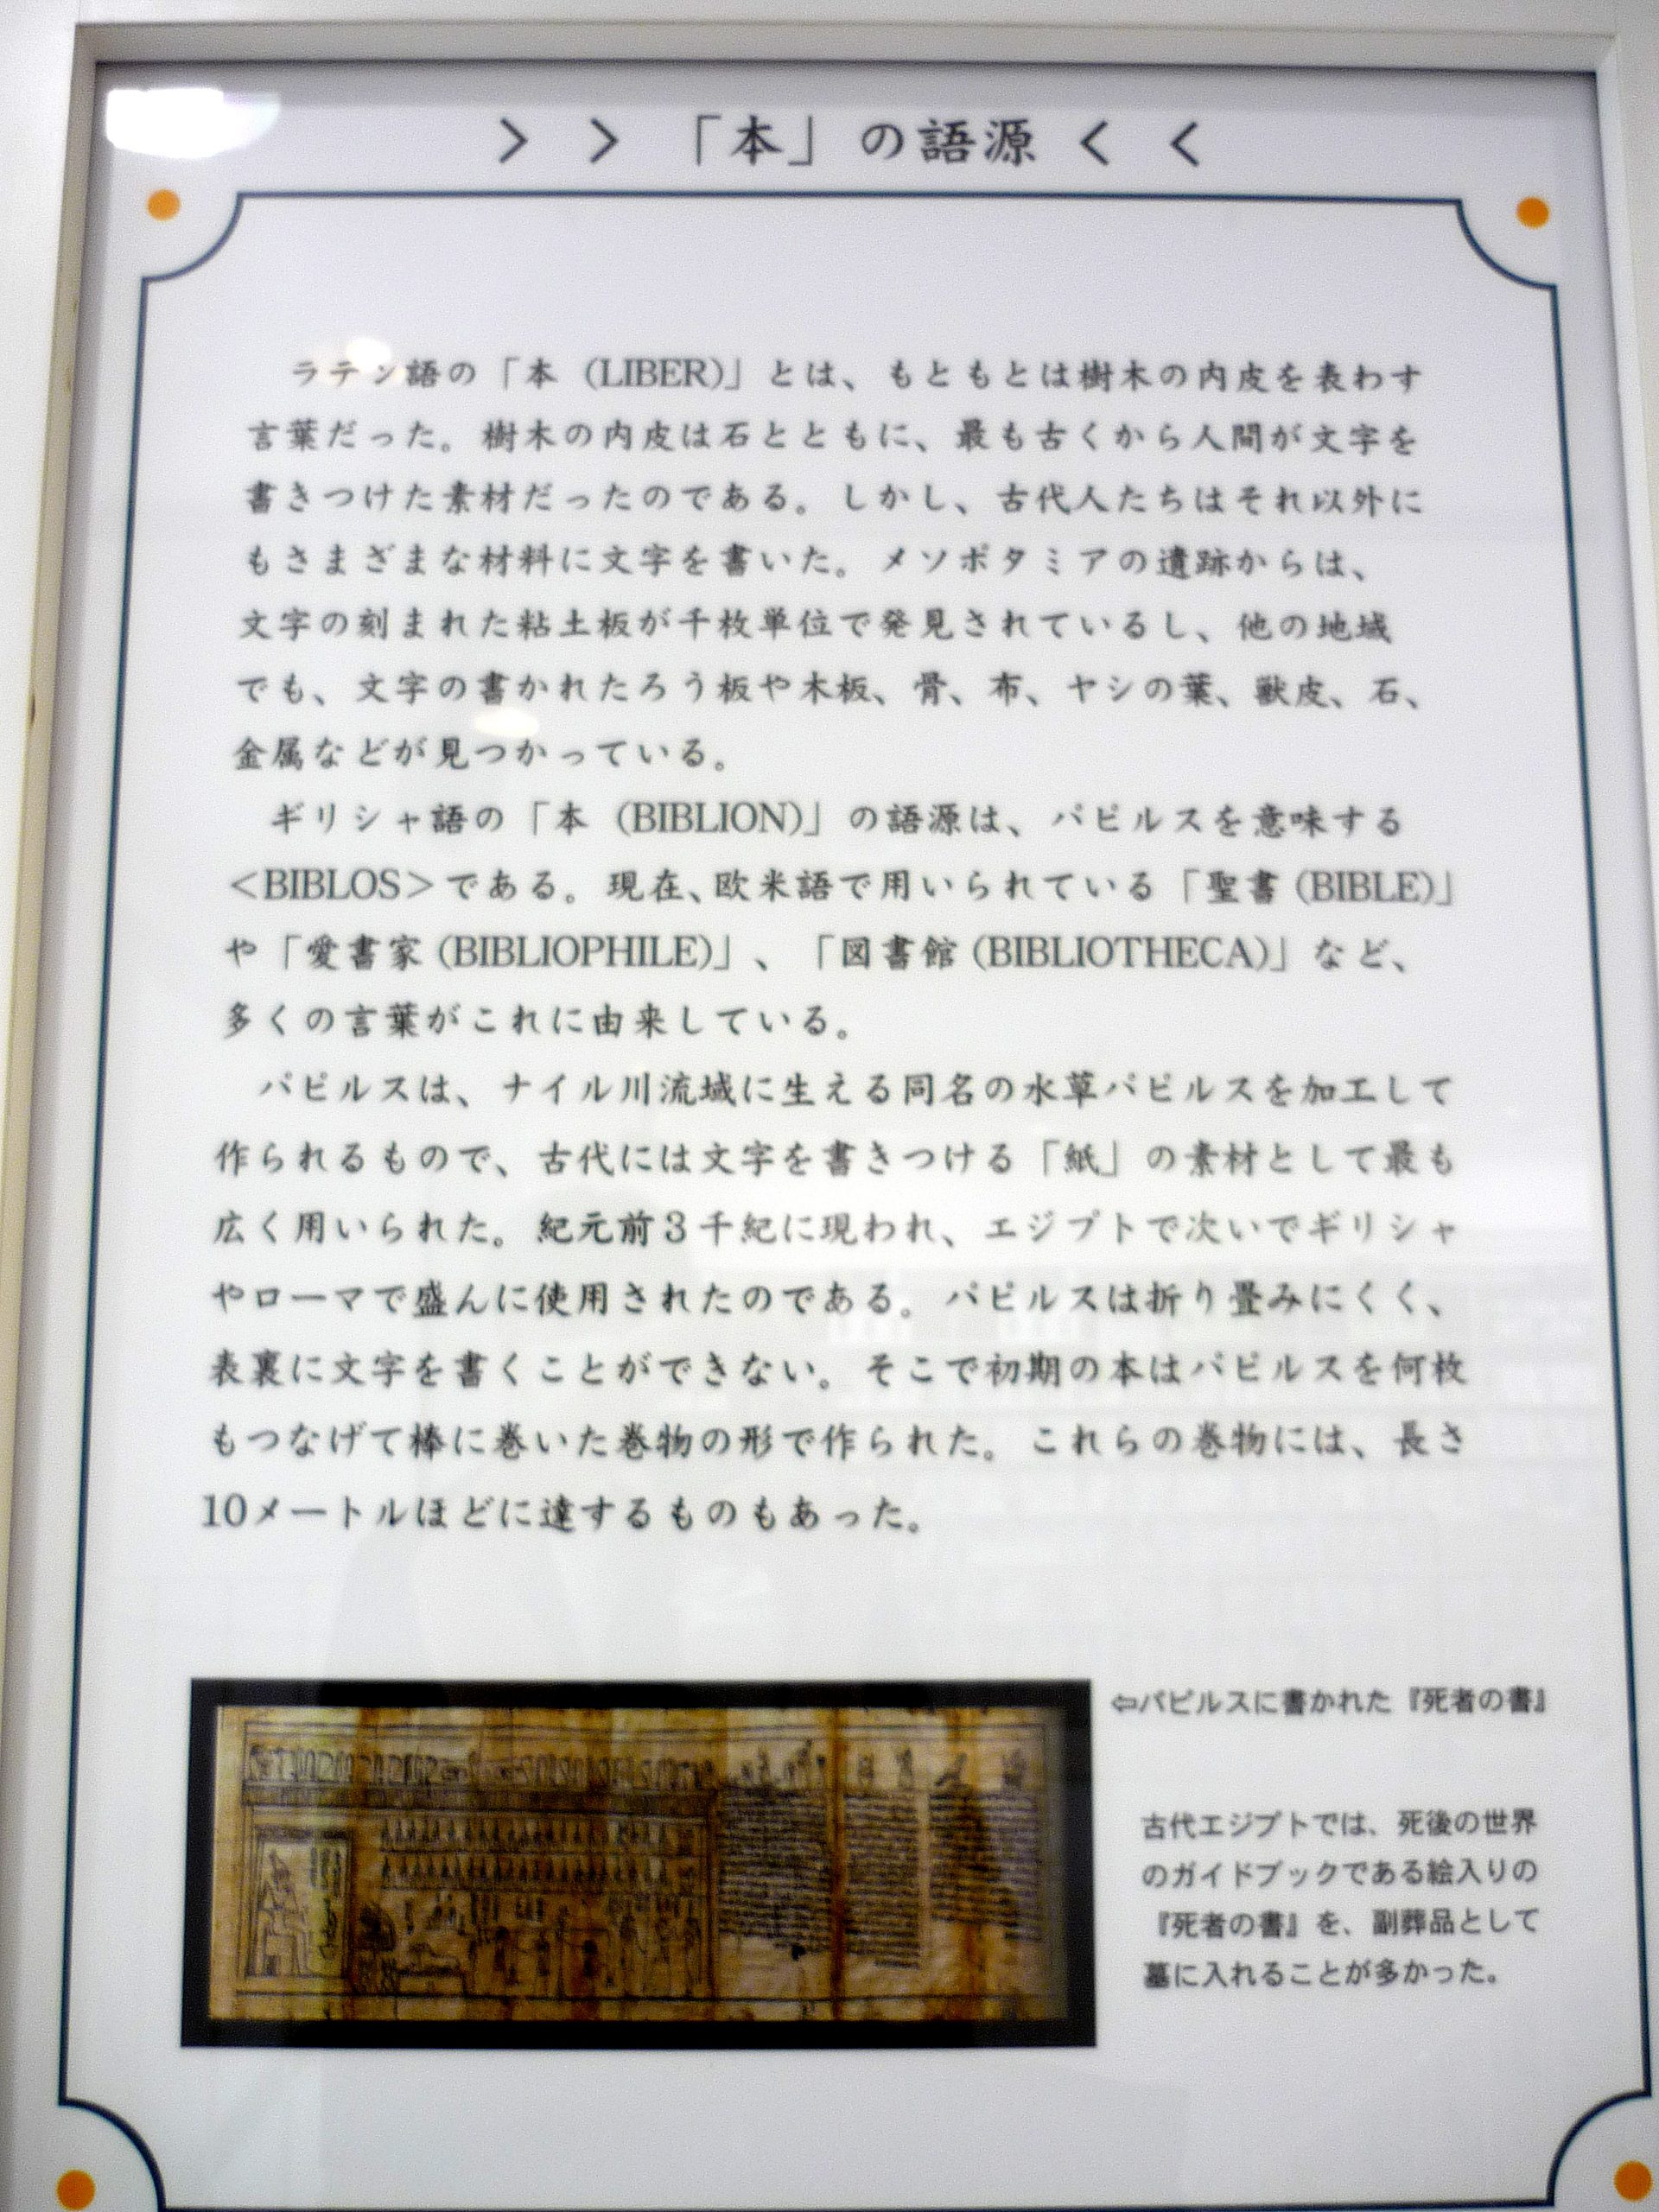 ＞ ＞ 「本」の語源 ＜ ＜
ラテン語の「本 (LIBER)」とは、もともとは樹木の内皮を表わす
言葉だった。樹木の内皮は石とともに、最も古くから人間が文字を
書きつけた素材だったのである。しかし、古代人たちはそれ以外に
もさまざまな材料に文字を書いた。メソポタミアの遺跡からは、
文字の刻まれた粘土板が千枚単位で発見されているし、他の地域
でも、文字の書かれたろう板や木板、骨、布、ヤシの葉、獣皮、石、
金属などが見つかっている。
ギリシャ語の「本 (BIBLION)」の語源は、パピルスを意味する
＜BIBLOS＞である。現在、欧米語で用いられている「聖書 (BIBLE)」
や「愛書家 (BIBLIOPHILE)」、「図書館 (BIBLIOTHECA)」など、
多くの言葉がこれに由来している。
パピルスは、ナイル川流域に生える同名の水草パピルスを加工して
作られるもので、古代には文字を書きつける「紙」の素材として最も
広く用いられた。紀元前3千紀に現われ、エジプトで次いでギリシャ
やローマで盛んに使用されたのである。パピルスは折り畳みにくく、
表裏に文字を書くことができない。そこで初期の本はパピルスを何枚
もつなげて棒に巻いた巻物の形で作られた。これらの巻物には、長さ
10メートルほどに達するものもあった。
⇦パピルスに書かれた『死者の書』
古代エジプトでは、死後の世界
のガイドブックである絵入りの
『死者の書』を、副葬品として
墓に入れることが多かった。